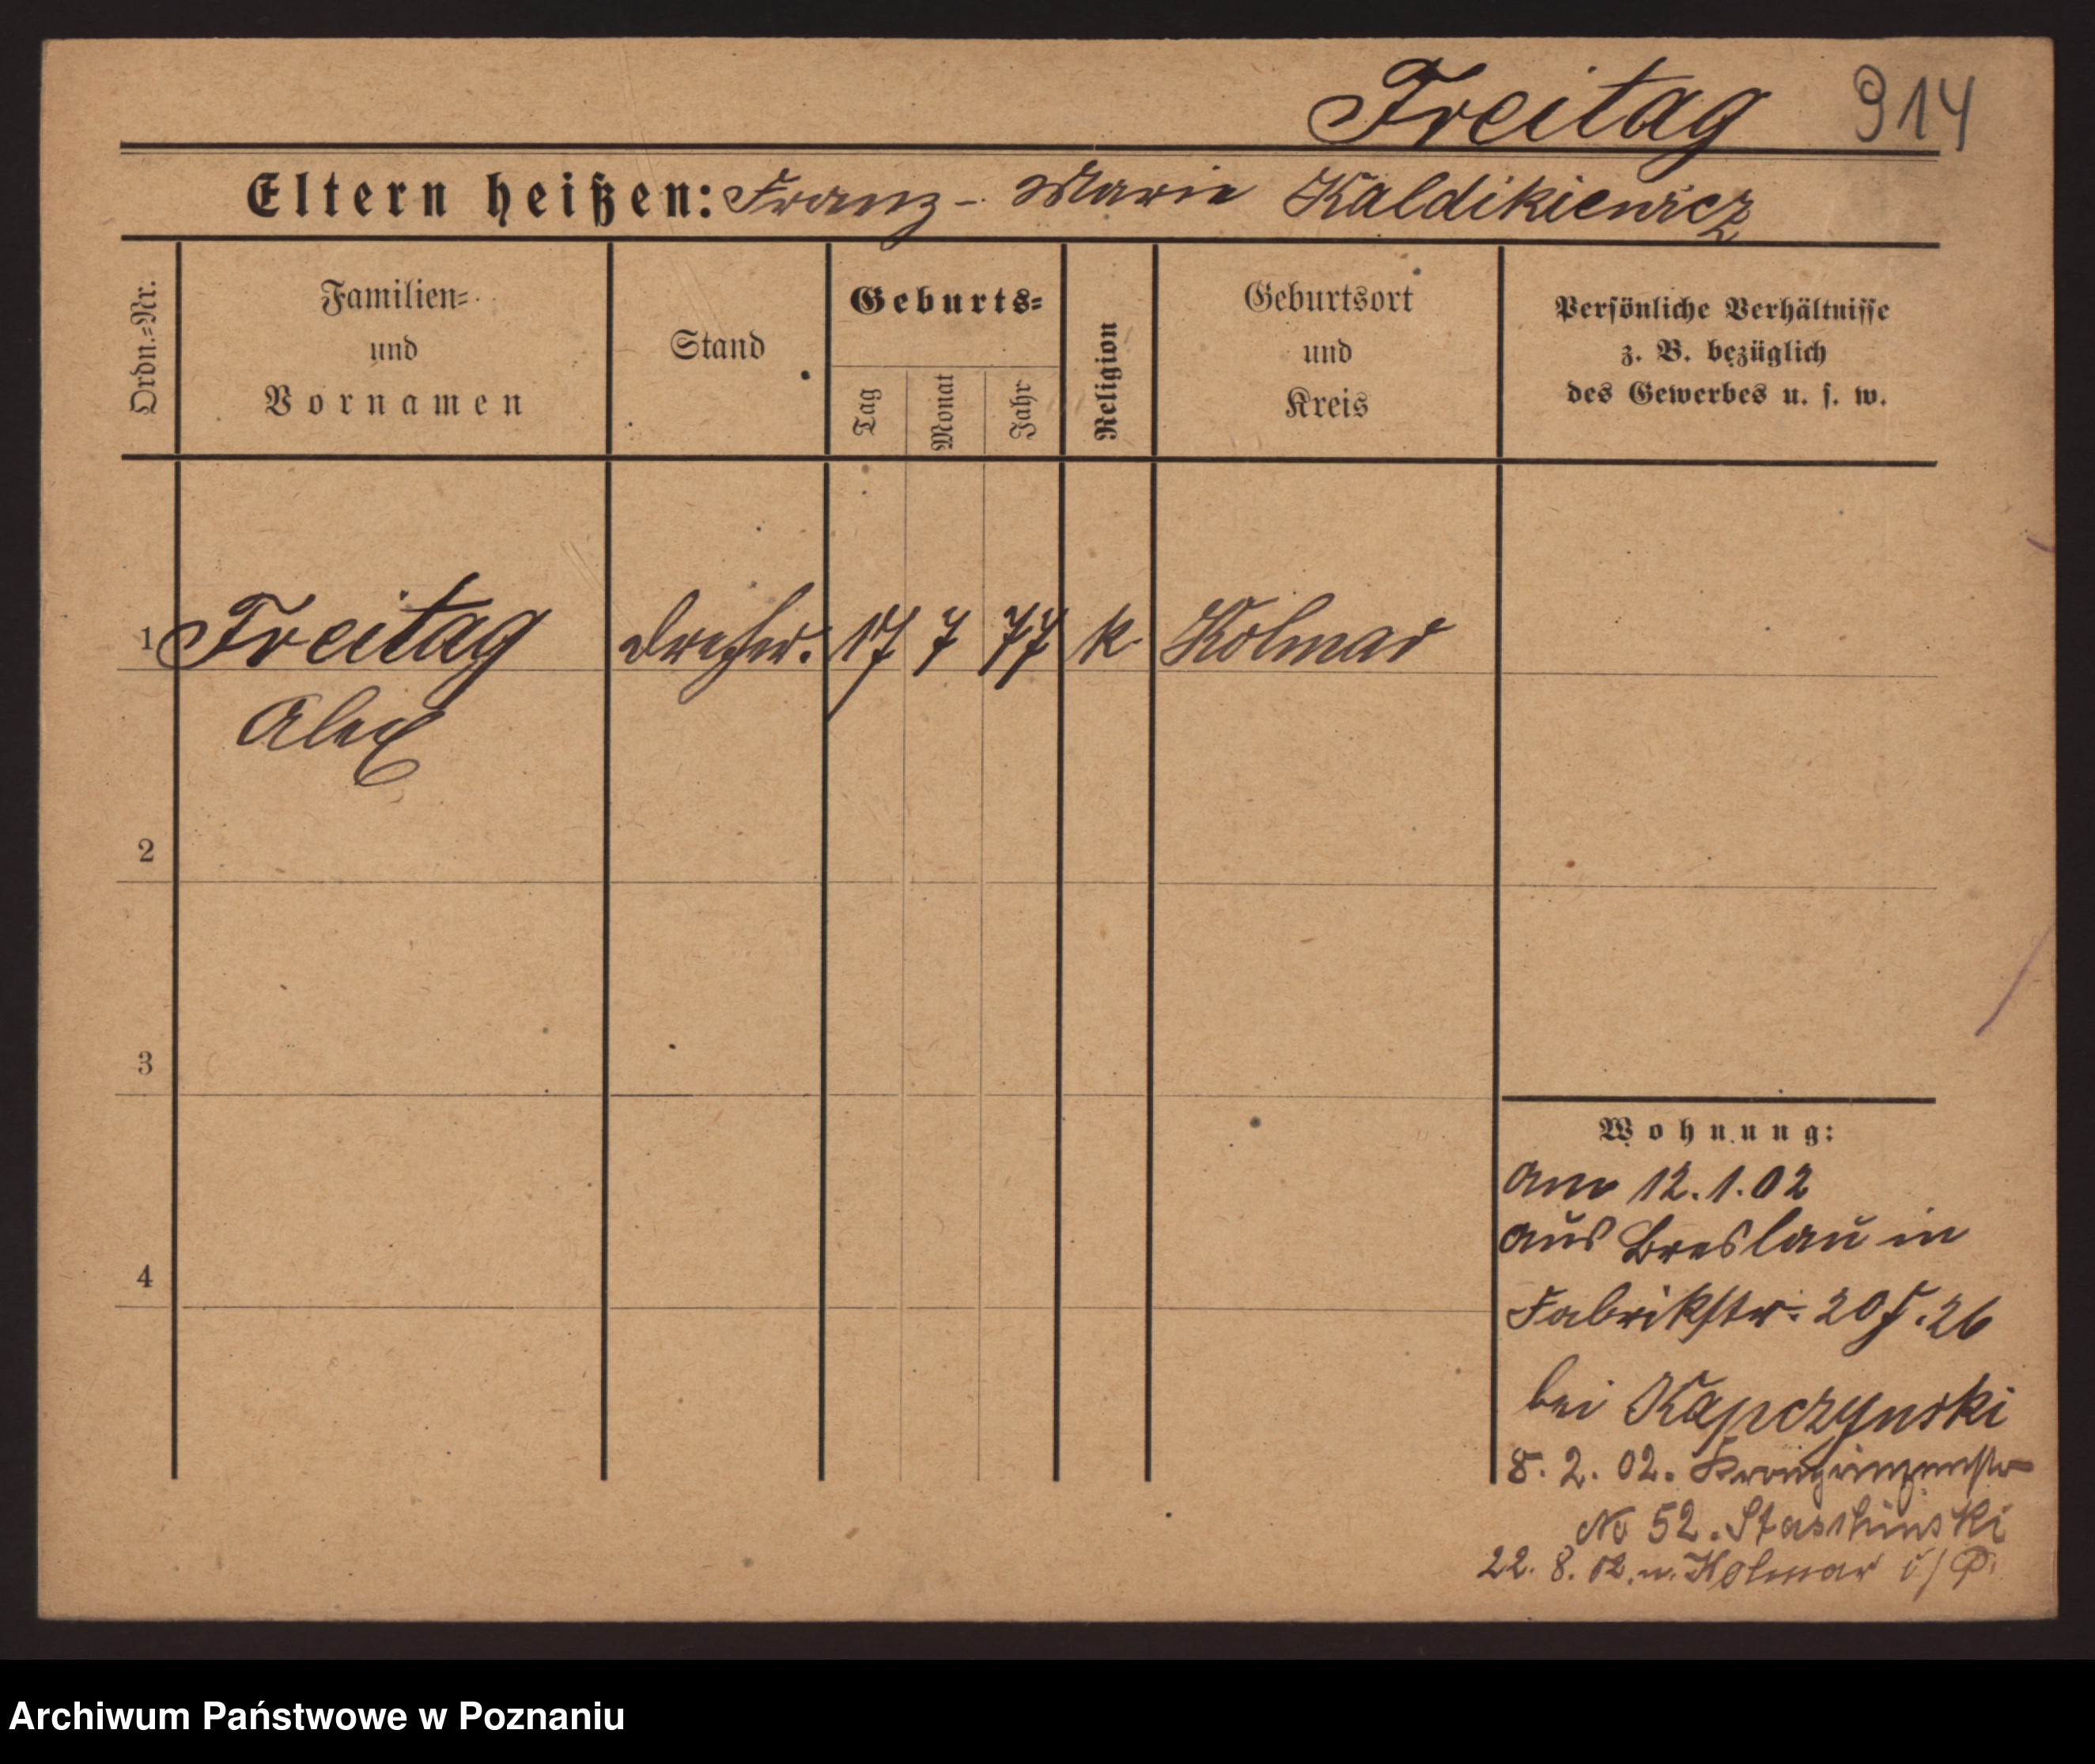 Freitag 914
Eltern heißen: Franz - Marie Kaldikiewicz
Ordn.=Nr.
Familien=
und
Vornamen
Stand
Geburts=
Tag
Monat
Jahr
Religion
Geburtsort
und
Kreis
Persönliche Verhältnisse
z. B. bezüglich
des Gewerbes u. s. w.
1 Freitag Dreher. 17 7 77 k. Kolmar
Alex
2
3
4
Wohnung:
am 12.1.02
aus Breslau in
Fabrikstr. 26
bei Kapczynski
8. 2. 02. Kronprinzenstr
No 52.
22. 8. 02. n. Kolmar i/P.
Archiwum Państwowe w Poznaniu